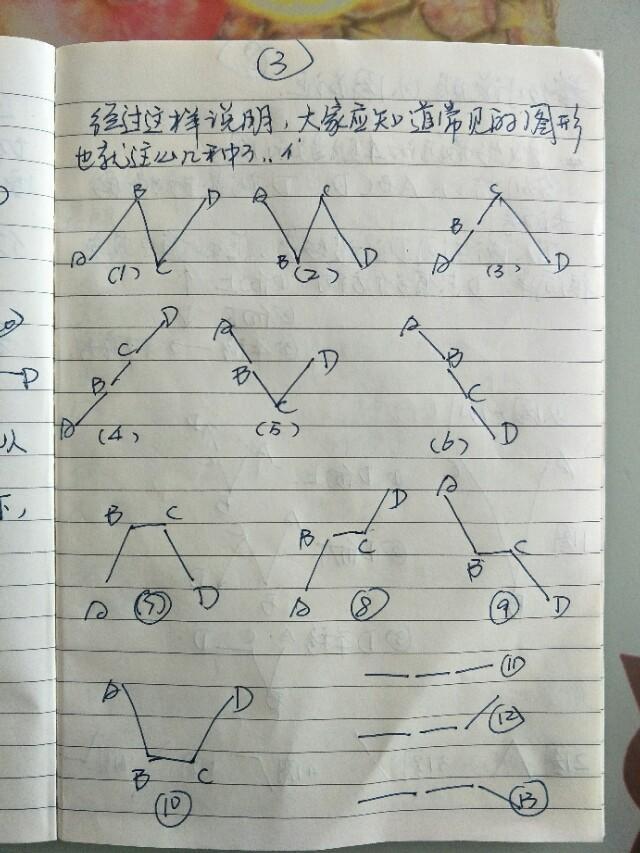 ③
经过这样说明，大家应知道常见的图形
也就这么几种了..个
B D A C C
A C B D B A D
(1) (2) (3)
D A A
C D B
B B C
A C D
(4) (5) (6)
B C D A
B C B C
A D A D
⑦ ⑧ ⑨
A D ⑪
B C ⑫
⑩ ⑬
D
从
下,